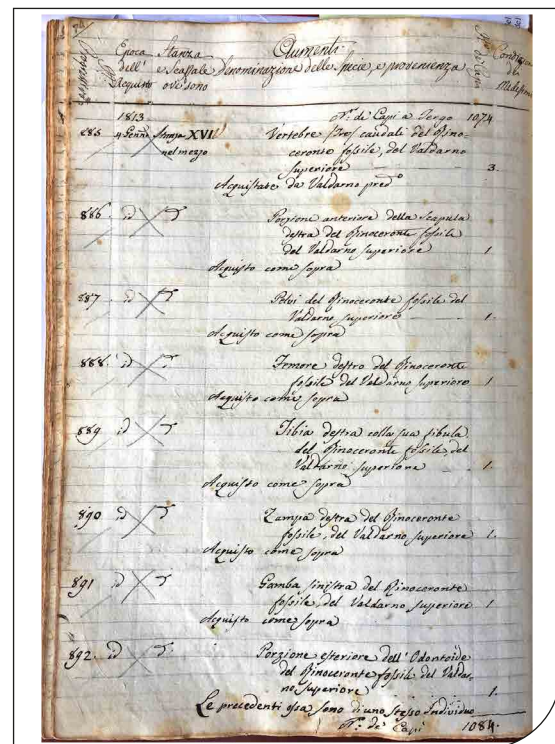 Aumenti
Epoca Stanza
dell' e Scaffale Denominazione delle Specie, e provenienza
Acquisto ove sono
1813 N.º de Capi a Tergo 1074
885 4 Genn. Stanza XVI Vertebre tres caudali del Rino-
nel mezzo ceronte fossile, del Valdarno
Superiore 3.
Acquistate da Valdarno pred.º
886 id Porzione anteriore della Scapula
destra del Rinoceronte fossile
del Valdarno Superiore 1.
Acquisto come sopra
887 id Pelvi del Rinoceronte fossile del
Valdarno Superiore 1.
Acquisto come sopra
888. id Femore destro del Rinoceronte
fossile del Valdarno Superiore 1
Acquisto come sopra
889 id Tibia destra colla sua fibula
del Rinoceronte fossile, del
Valdarno Superiore 1.
Acquisto come sopra
890 id Zampa destra del Rinoceronte
fossile, del Valdarno Superiore 1.
Acquisto come sopra
891 id Gamba sinistra del Rinoceronte
fossile, del Valdarno Superiore 1
Acquisto come sopra
892. id Porzione esteriore dell' Odontoide
del Rinoceronte fossile del Valdar-
no Superiore 1.
Le precedenti ossa sono di uno stesso Individuo
N.º de' Capi 1084.